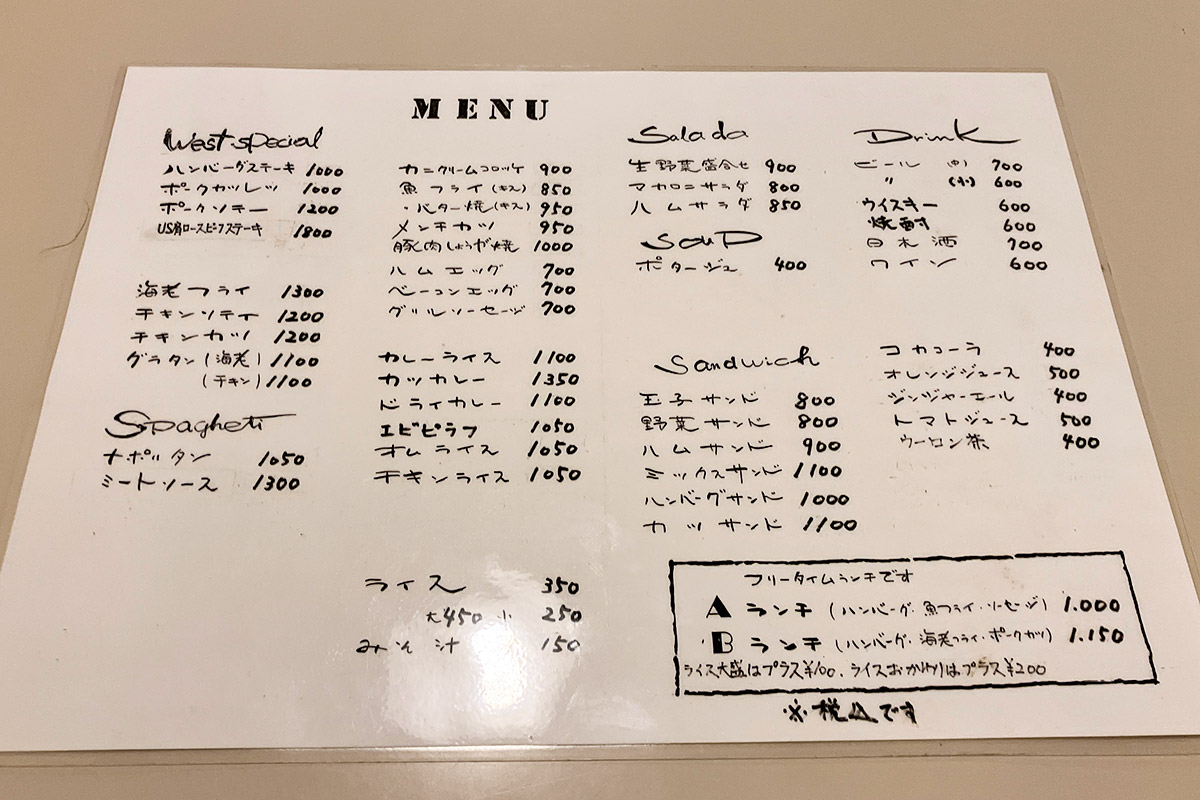 MENU
West special
ハンバーグステーキ 1000
ポークカツレツ 1000
ポークソテー 1200
US肩ロースビーフステーキ 1800
海老フライ 1300
チキンソティ 1200
チキンカツ 1200
グラタン(海老) 1100
(チキン) 1100
Spaghetti
ナポリタン 1050
ミートソース 1300
カニクリームコロッケ 900
魚フライ(キス) 850
・バター焼(キス) 950
メンチカツ 950
豚肉しょうが焼 1000
ハムエッグ 700
ベーコンエッグ 700
グリルソーセージ 700
カレーライス 1100
カツカレー 1350
ドライカレー 1100
エビピラフ 1050
オムライス 1050
チキンライス 1050
ライス 350
大450 小 250
みそ汁 150
Salada
生野菜盛合せ 900
マカロニサラダ 800
ハムサラダ 850
SouP
ポタージュ 400
Sandwich
玉子サンド 800
野菜サンド 800
ハムサンド 900
ミックスサンド 1100
ハンバーグサンド 1000
カツサンド 1100
Drink
ビール (中) 700
〃 (小) 600
ウイスキー 600
焼酎 600
日本酒 700
ワイン 600
コカコーラ 400
オレンジジュース 500
ジンジャーエール 400
トマトジュース 500
ウーロン茶 400
フリータイムランチです
A ランチ (ハンバーグ・魚フライ・ソーセージ) 1.000
B ランチ (ハンバーグ・海老フライ・ポークカツ) 1.150
ライス大盛はプラス¥100、ライスおかわりはプラス¥200
※税込です